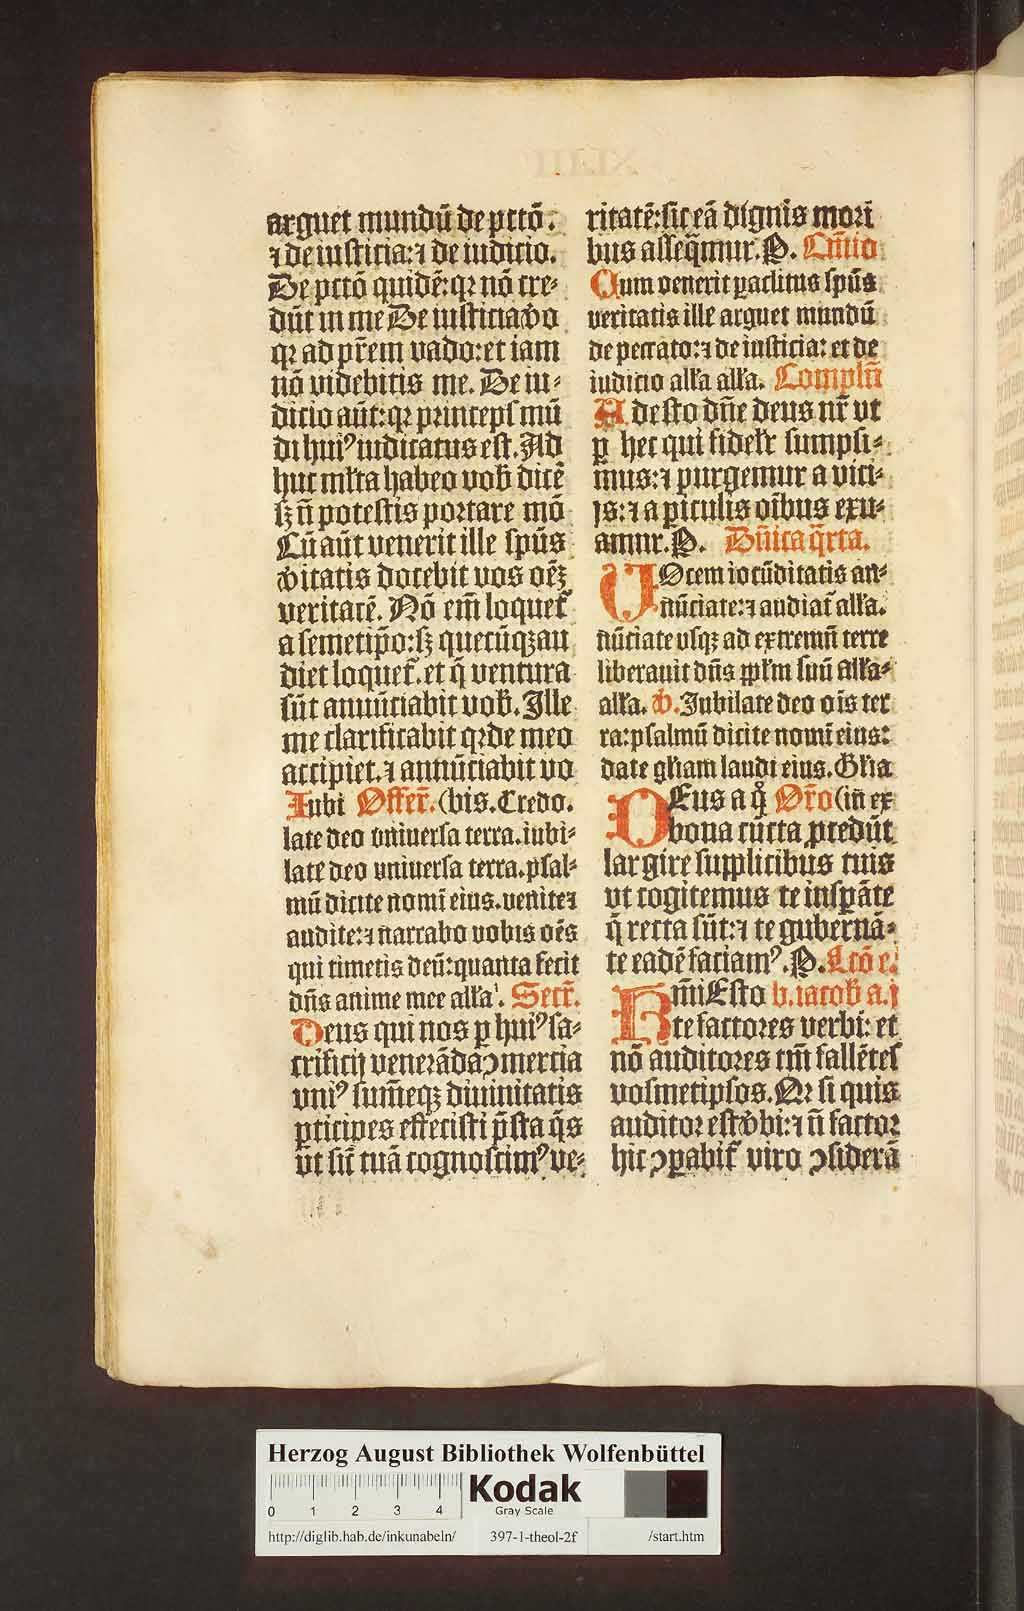 arguet mundū de pctō.
⁊ de iusticia: ⁊ de iudicio.
De pctō quidē: qꝛ nō cre⸗
dūt in me De iusticia v̓o
qꝛ ad pr̄em vado: et iam
nō videbitis me. De iu⸗
dicio aūt: qꝛ princeps mū
di huiꝰ iudicatus est. Ad
huc ml̓ta habeo vob̓ dicē
sꝫ n̄ potestis portare mō
Cū aūt venerit ille sp̄us
v̓itatis docebit vos oēꝫ
veritatē. Nō em̄ loquet̓
a semetip̄o: sꝫ quecūqꝫ au
diet loquet̓. et q̄ ventura
sūt annūciabit vob̓. Ille
me clarificabit qꝛ de meo
accipiet. ⁊ annūciabit vo
Iubi Offer̄. (bis. Credo.
late deo vniuersa terra. iubi⸗
late deo vniuersa terra. psal⸗
mū dicite nomī eius. venite ⁊
audite: ⁊ narrabo vobis oēs
qui timetis deū: quanta fecit
dn̄s anime mee all̓a. Secr̄.
Deus qui nos ꝑ huiꝰ sa⸗
crificij venerāda ꝯmercia
vniꝰ sum̄eqꝫ diuinitatis
ꝑticipes effecisti p̄sta q̄s
vt sic̄ tuā cognoscimꝰ ve⸗
ritatē: sic eā dignis mori
bus asseq̄mur. P. Cm̄io
Cum venerit ꝑaclitus sp̄us
veritatis ille arguet mundū
de peccato: ⁊ de iusticia: et de
iudicio all̓a all̓a. Compln̄
Adesto dn̄e deus nr̄ vt
ꝑ hec qui fidel̓r sumpsi⸗
mus: ⁊ purgemur a vici⸗
js: ⁊ a ꝑiculis oībus exu⸗
amur. P. Dn̄ica q̄rta.
VOcem iocūditatis an⸗
nūciate: ⁊ audiat̄ all̓a.
nūciate vsqꝫ ad extremū terre
liberauit dn̄s ppl̓m suū all̓a⸗
all̓a. v̓. Iubilate deo oīs ter
ra: psalmū dicite nomī eius:
date gl̓iam laudi eius. Gl̓ia
DEus a q̊ Or̄o (in ex
bona cūcta ꝓcedūt
largire supplicibus tuis
vt cogitemus te insꝑāte
q̄ recta sūt: ⁊ te gubernā⸗
te eadē faciamꝰ. P. Lcō e.
Km̄i Esto b. iacob̓ a. j
te factores verbi: et
nō auditores tm̄ fallētes
vosmetipsos. Qꝛ si quis
auditor est v̓bi: ⁊ n̄ factor
hic ꝯꝑabit̓ viro ꝯsiderā
Herzog August Bibliothek Wolfenbüttel
0 1 2 3 4
Kodak
Gray Scale
http://diglib.hab.de/inkunabeln/ 397-1-theol-2f /start.htm